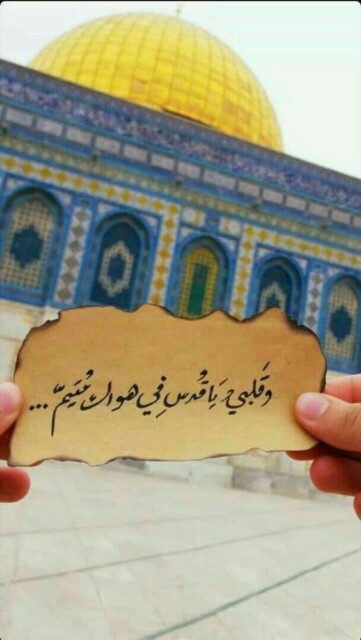 وَقلبي يَا قُدس فِي هواك مُتيمّ...